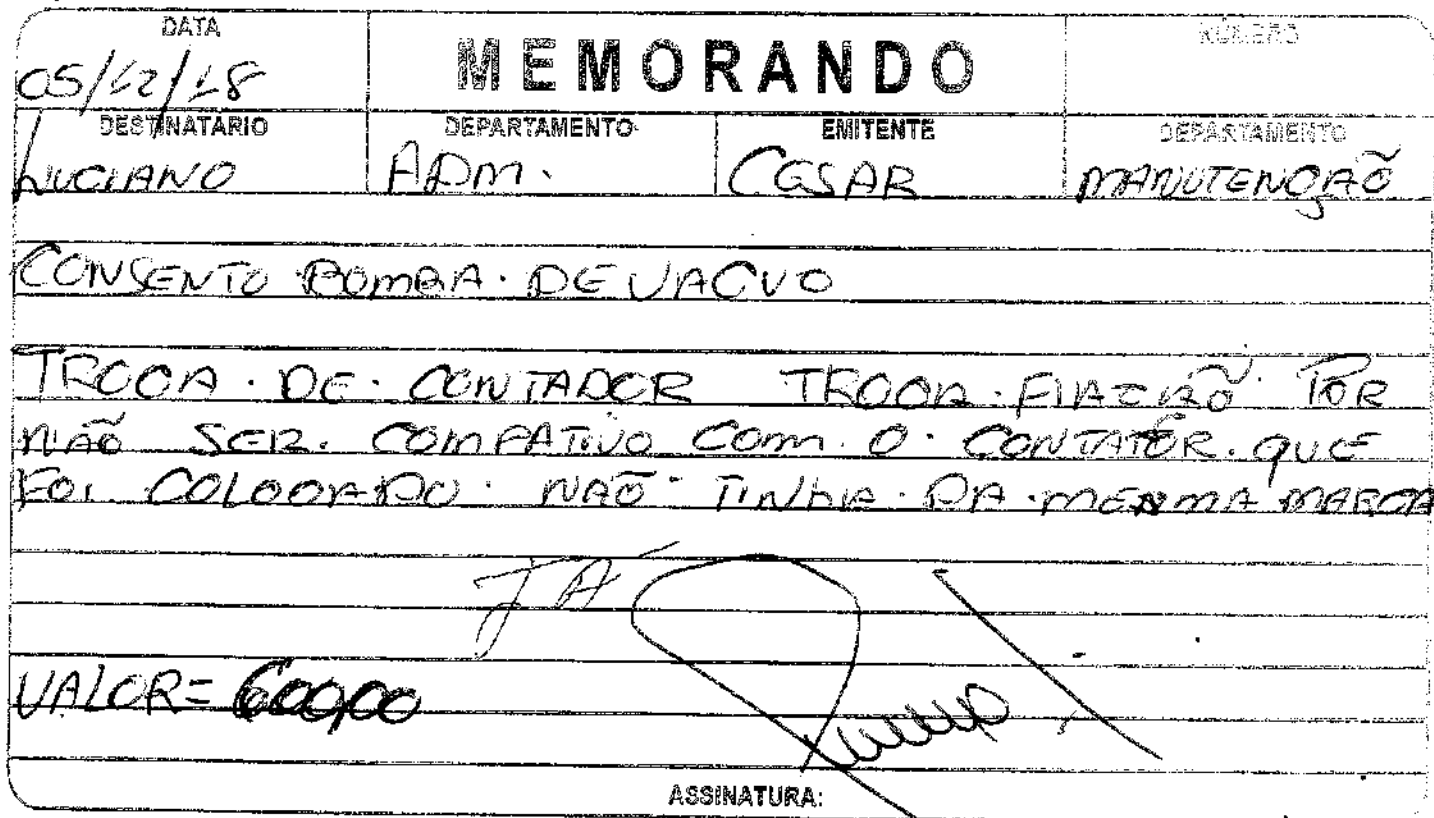 DATA
MEMORANDO
NÚMERO
05/12/18
DESTINATÁRIO DEPARTAMENTO EMITENTE DEPARTAMENTO
LUCIANO ADM. CESAR MANUTENÇÃO
CONSENTO BOMBA. DE VACVO
TROCA. DE. CONTADOR TROCA. FIAÇÃO POR
NÃO SER. COMPATIVO COM. O. CONTATOR. QUE
FOI COLOCADO. NÃO TINHA. DA. MESMA MARCA
JÁ
VALOR= 600,00
ASSINATURA: